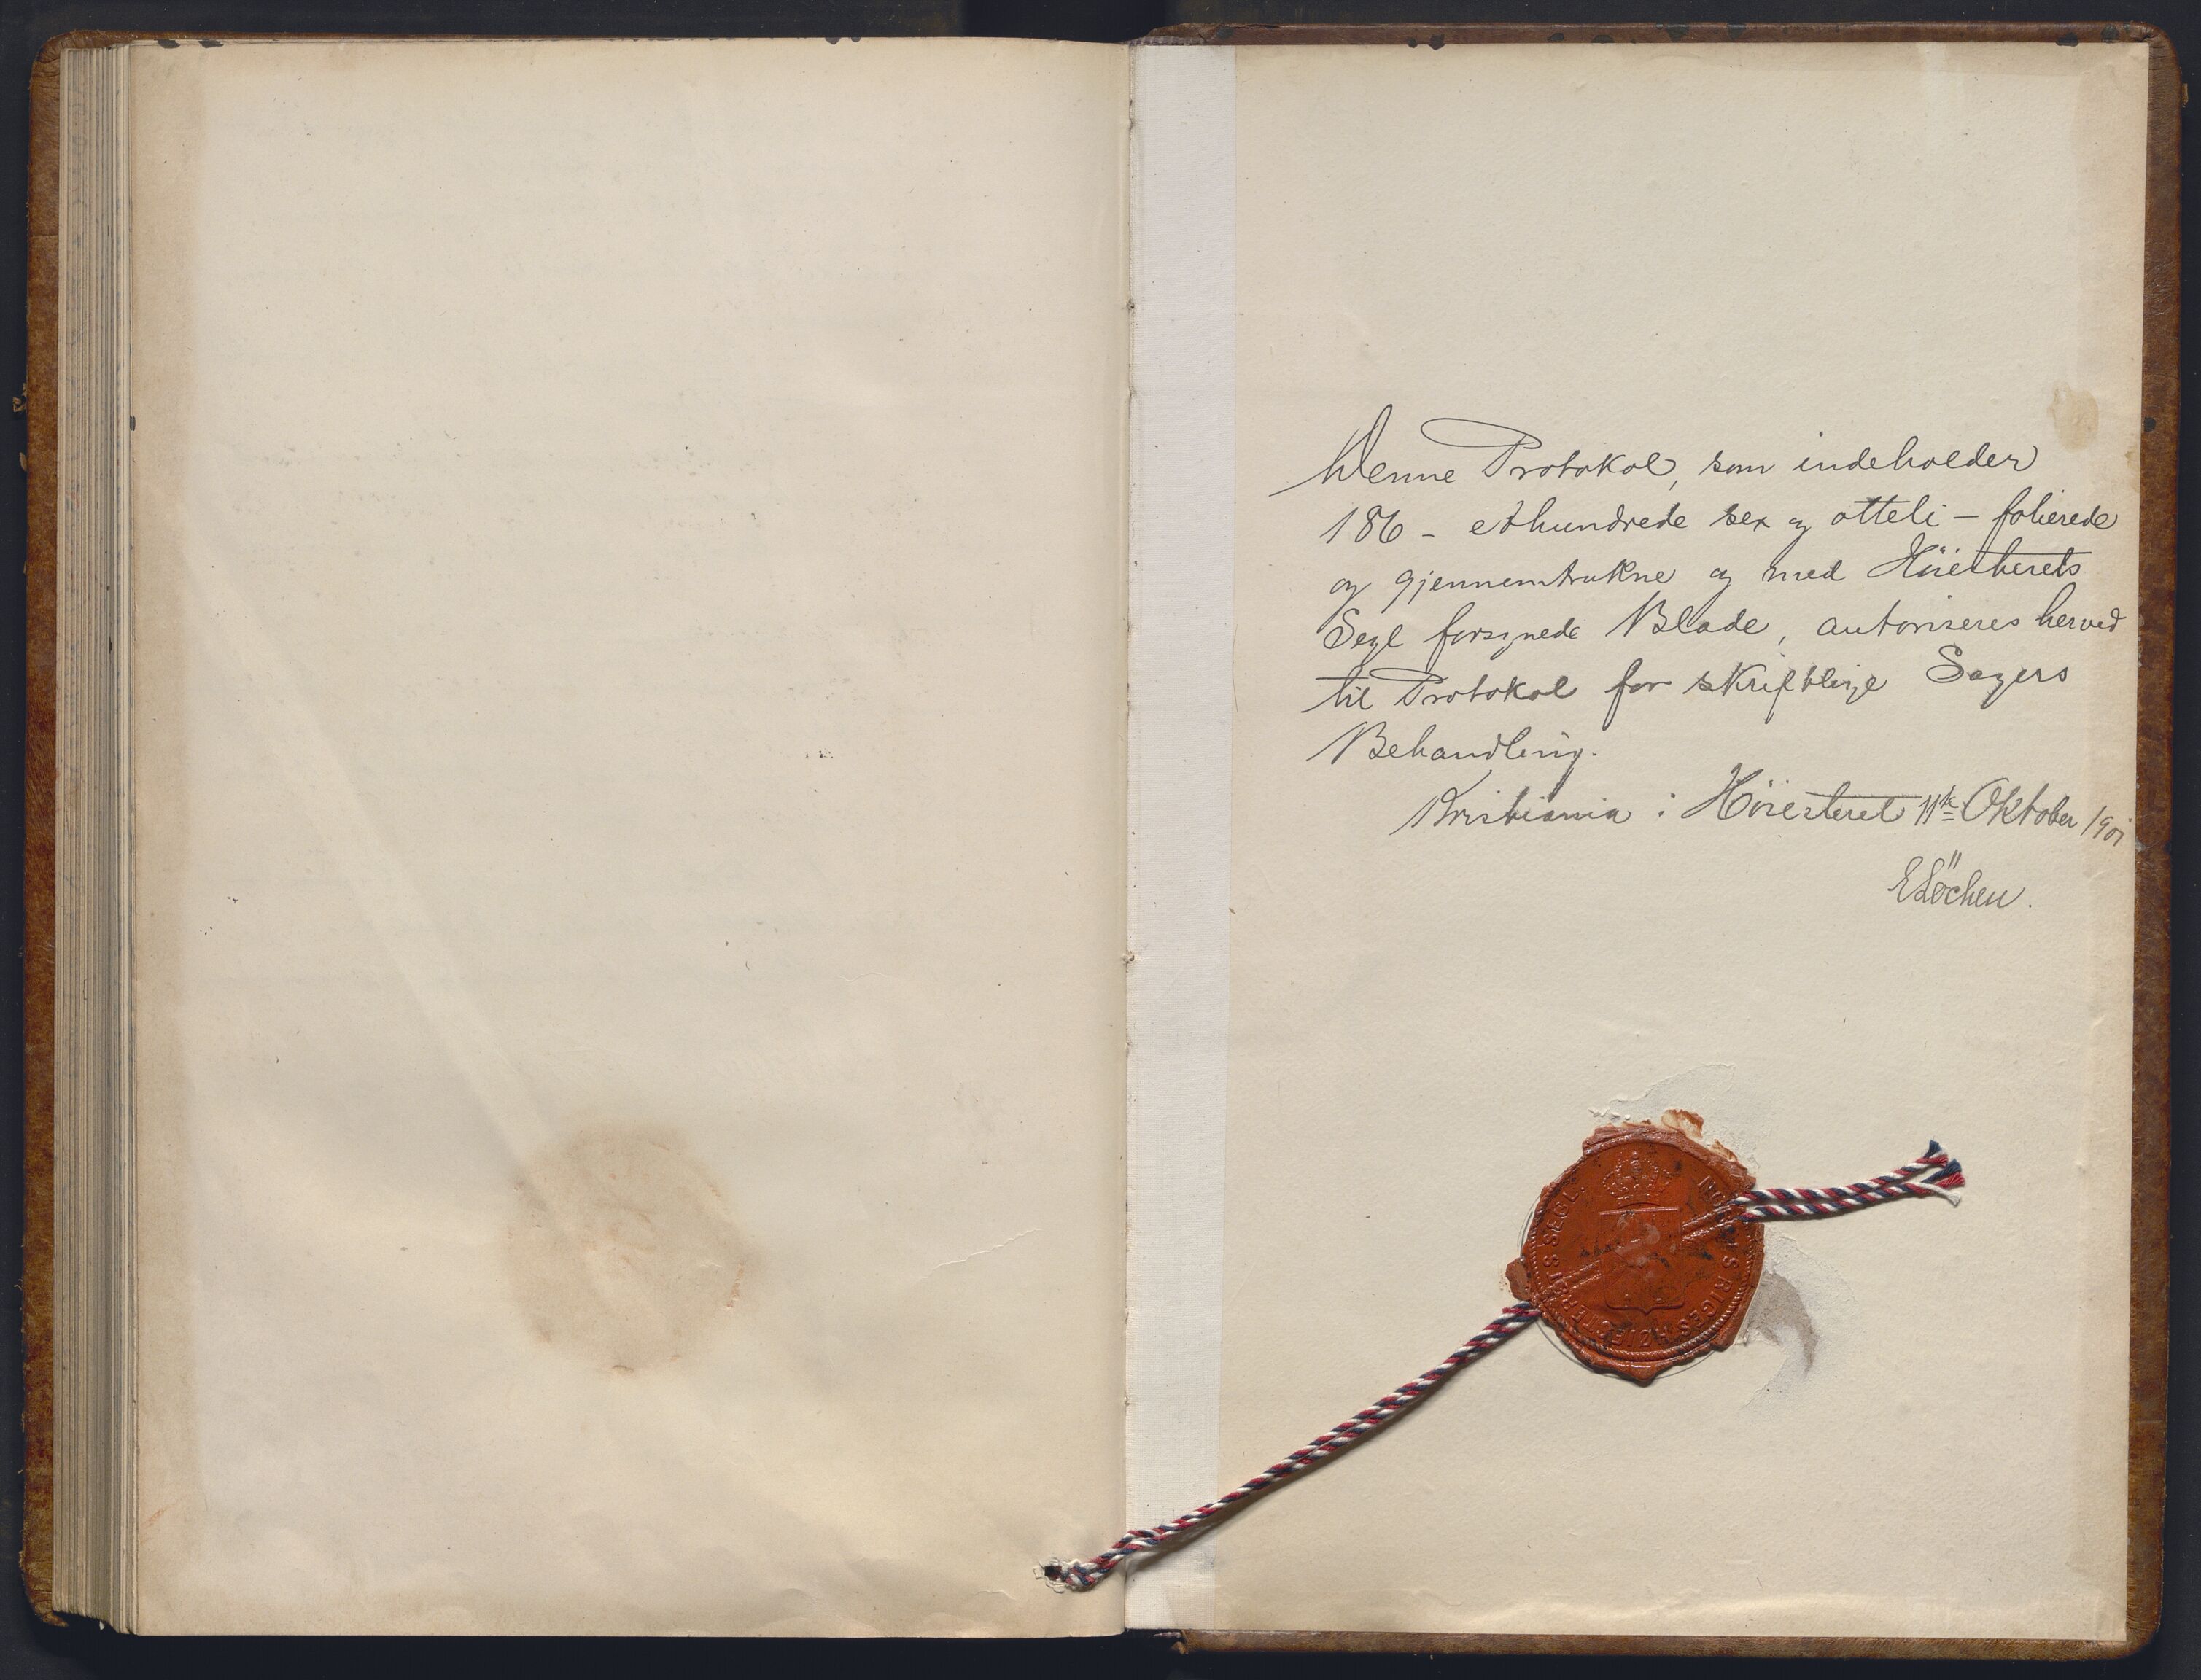 Denne Protokol, som indeholder
186 – ethundrede sex og otteti – folierede
og gjennemtrukne og med Höiesterets
Segl forsynede Blade, autoriseres herved
til Protokol for skriftlige Sagers
Behandling.
Kristiania i Höiesteret 11te Oktober 1901
E Löchen.
NORGES RIGES HØIESTERETS SEGL.